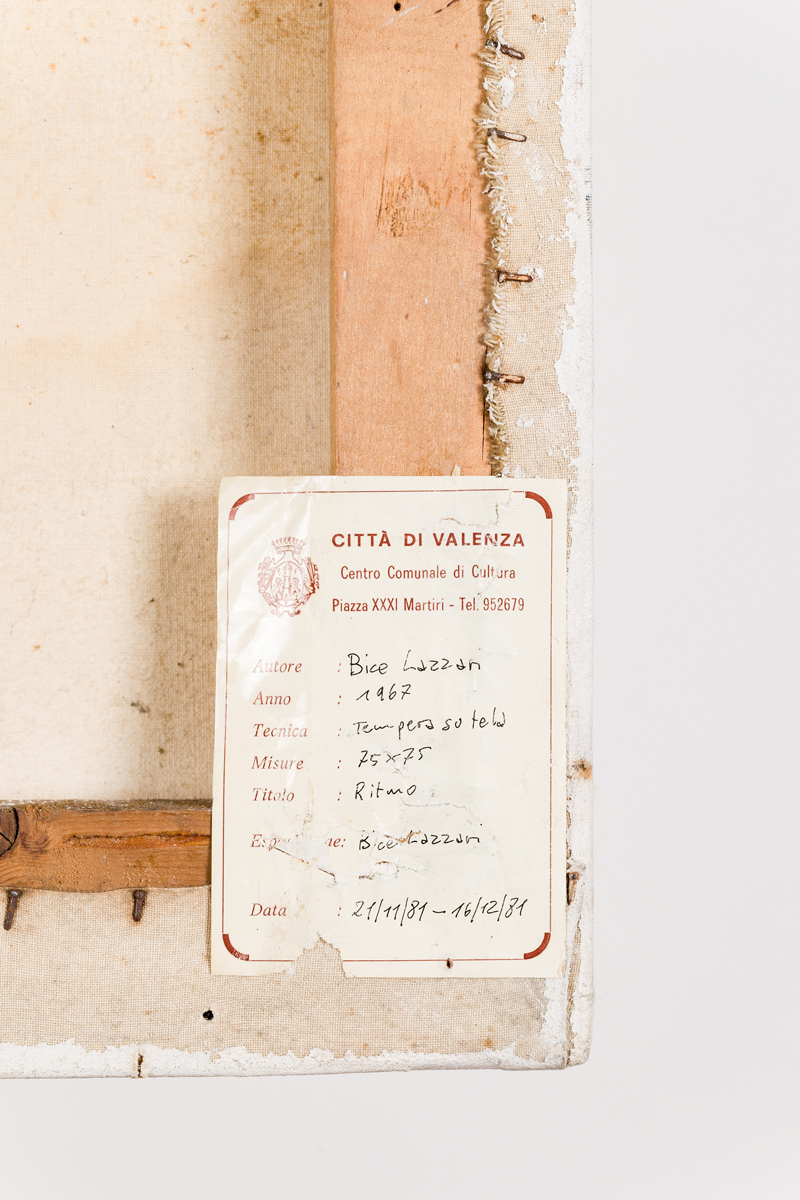 CITTÀ DI VALENZA
Centro Comunale di Cultura
Piazza XXXI Martiri - Tel. 952679
Autore : Bice Lazzari
Anno : 1967
Tecnica : Tempera su tela
Misure : 75x75
Titolo : Ritmo
Bice Lazzari
Data : 21/11/81 - 16/12/81